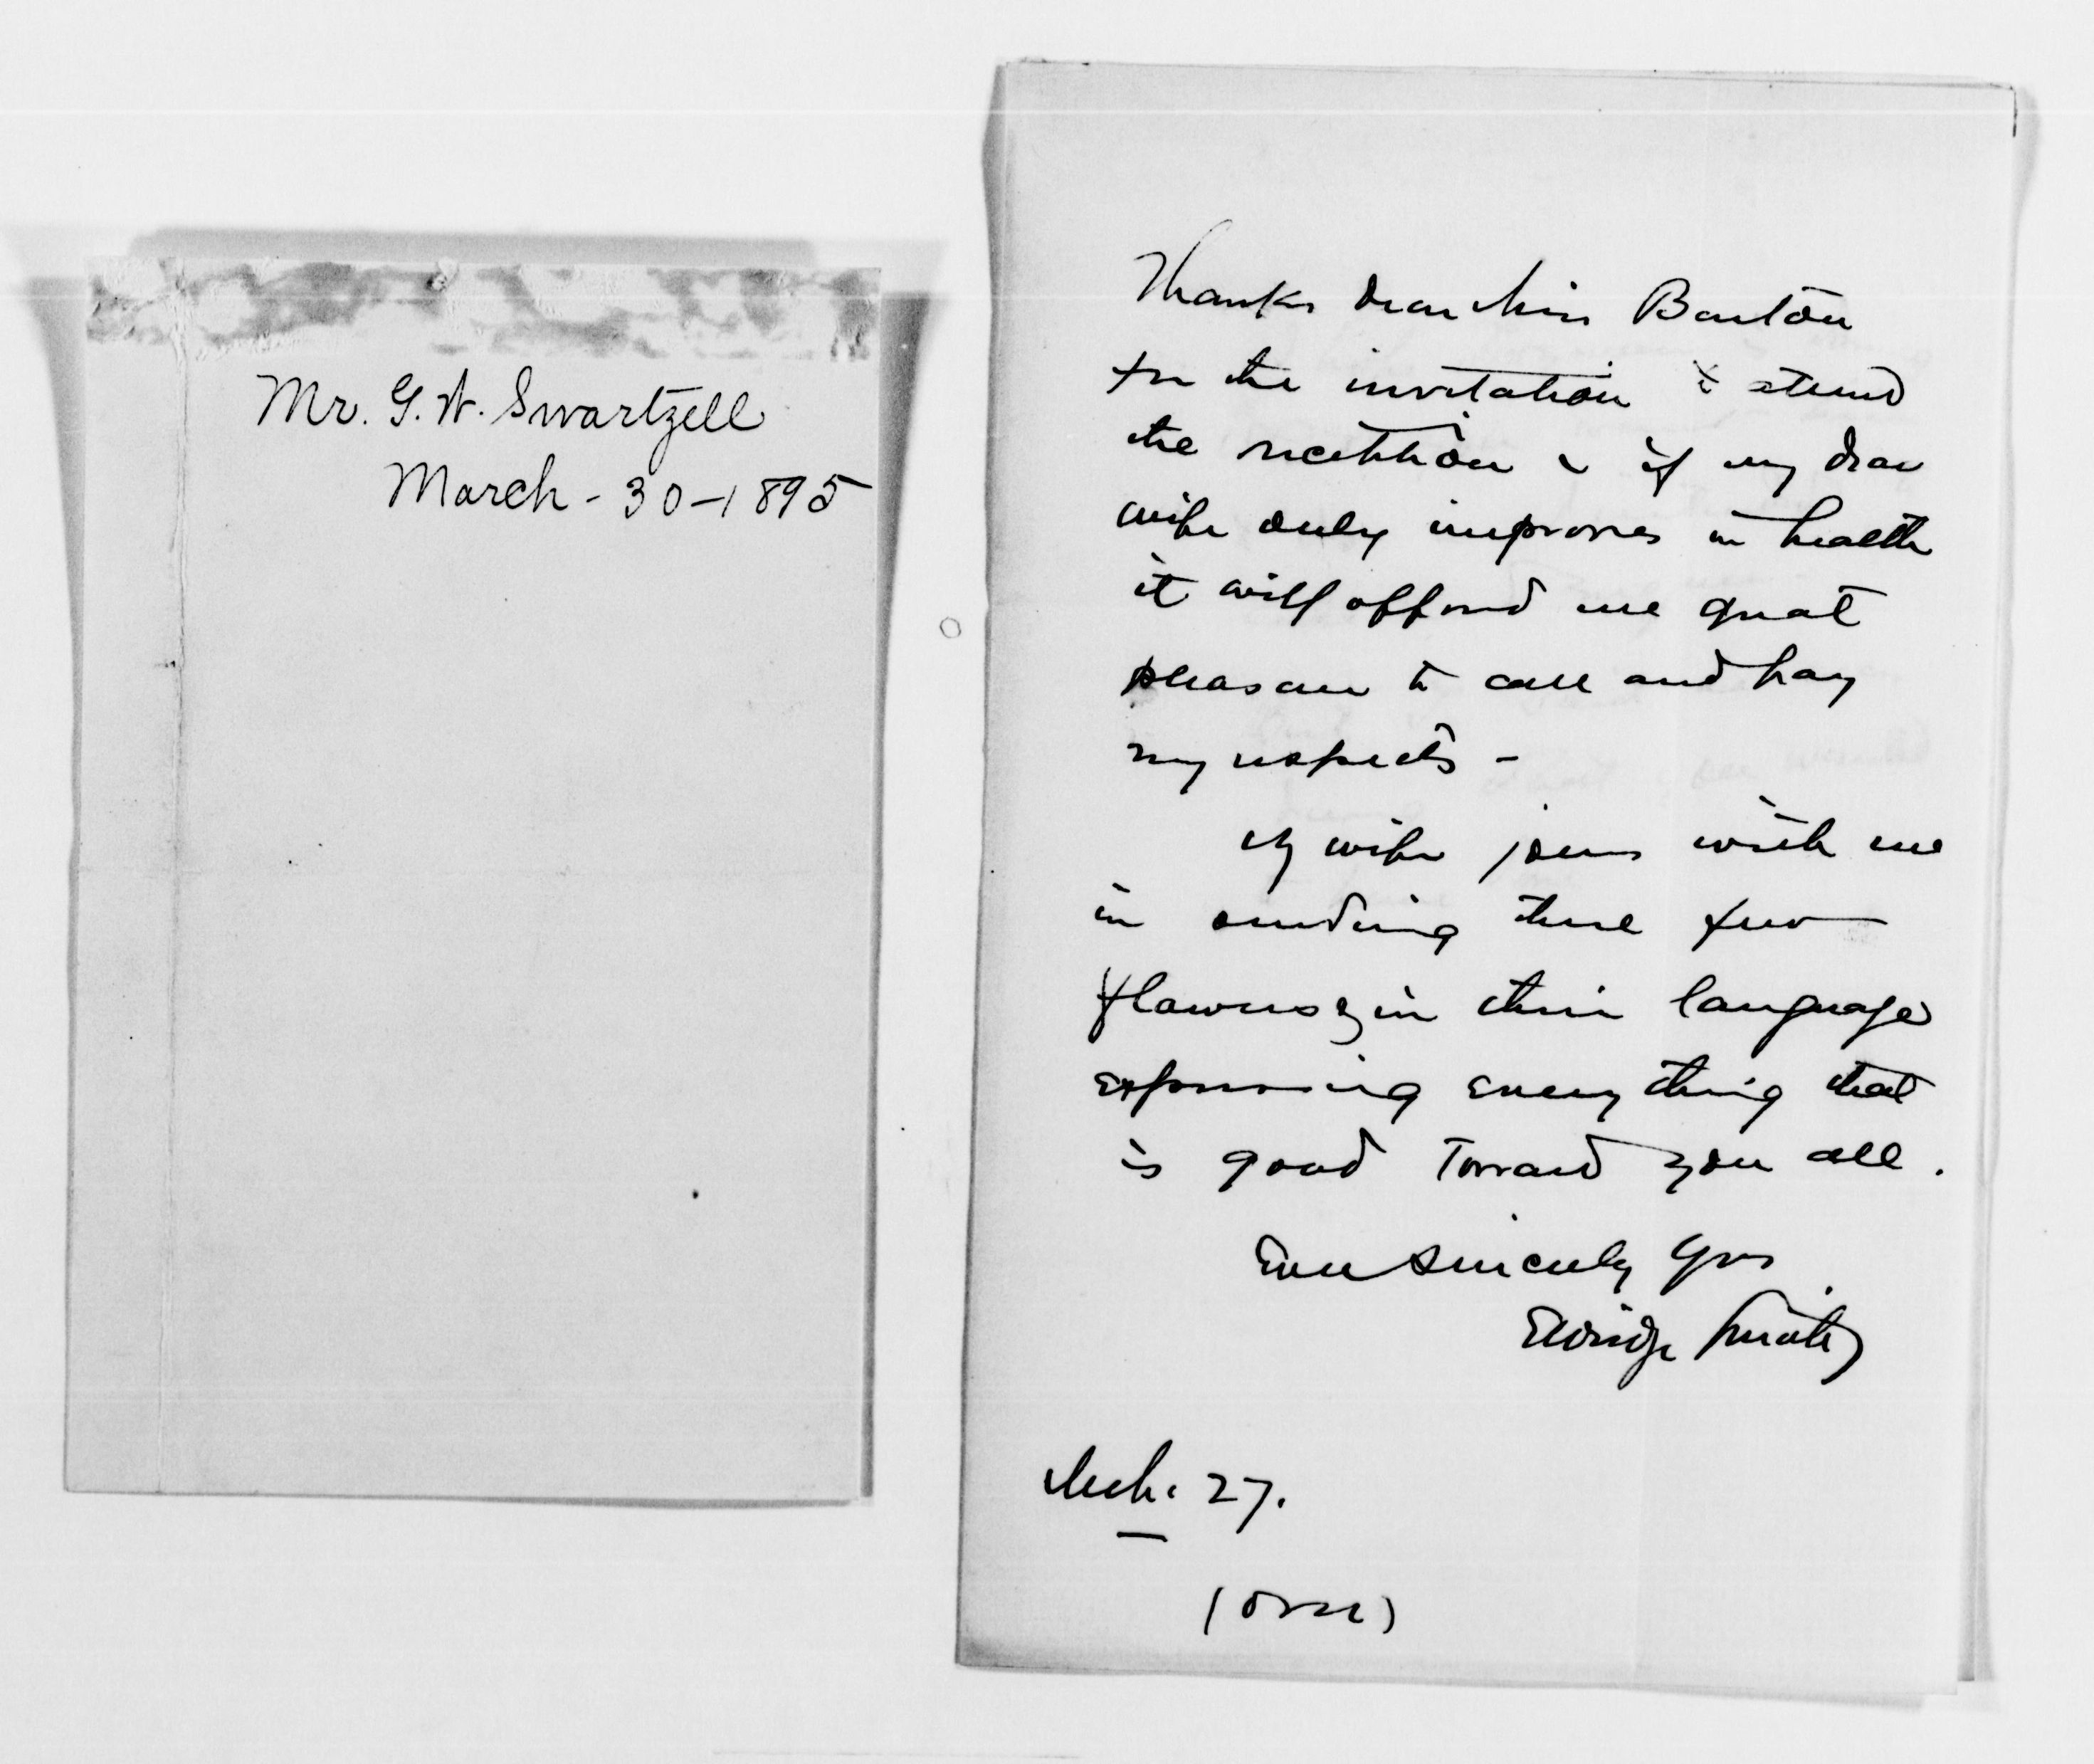 Mr. G. W. Swartzell
March - 30 - 1895
Thanks dear Miss Barton
for the invitation to attend
the reception & if my dear
wife only improves in health
it will afford me great
pleasure to call and pay
my respects -
My wife joins with me
in sending these few
flowers & in their language
expressing every thing that
is good toward you all.
Ever sincerely yrs
Eldridge Smith
Mch. 27.
(over)